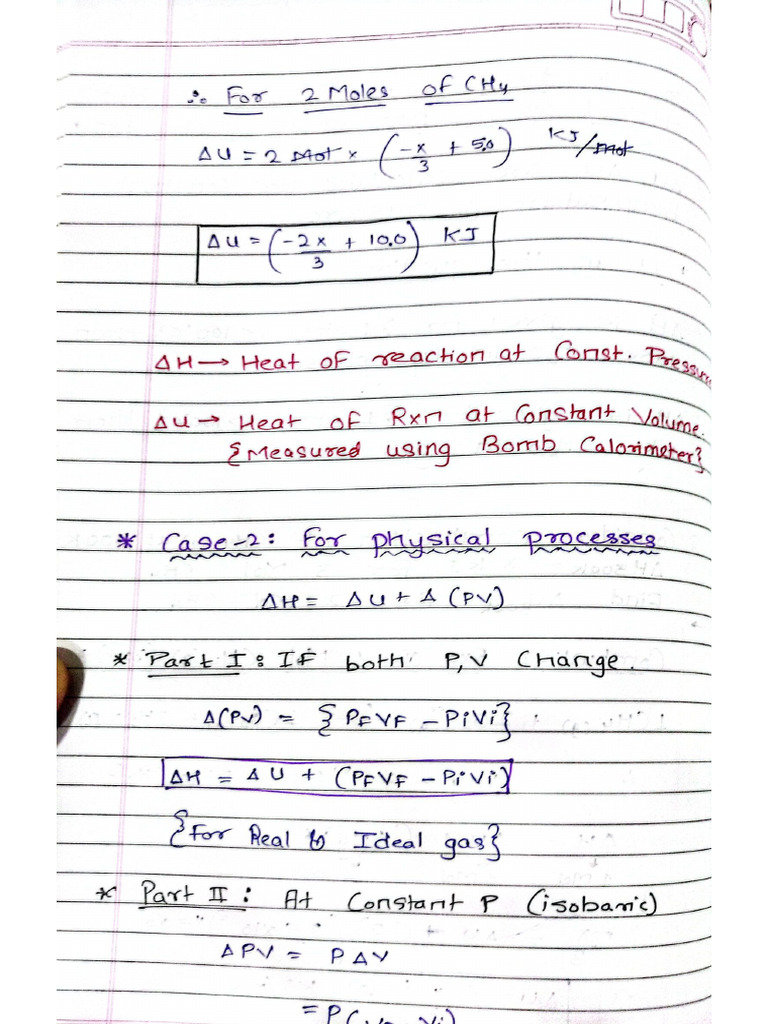 ∴ For 2 Moles of CH4
ΔU = 2 mol × (-x/3 + 5.0) KJ/mol
ΔU = (-2x/3 + 10.0) KJ
ΔH → Heat of reaction at Const. Pressure
ΔU → Heat of Rxn at Constant Volume.
{Measured using Bomb Calorimeter}
* Case-2: For physical processes
ΔH = ΔU + Δ (PV)
* Part I : IF both P, V Change.
Δ(PV) = {PFVF - PiVi}
ΔH = ΔU + (PFVF - PiVi)
{For Real & Ideal gas}
* Part II : At Constant P (isobaric)
ΔPV = PΔV
= P( Vi)